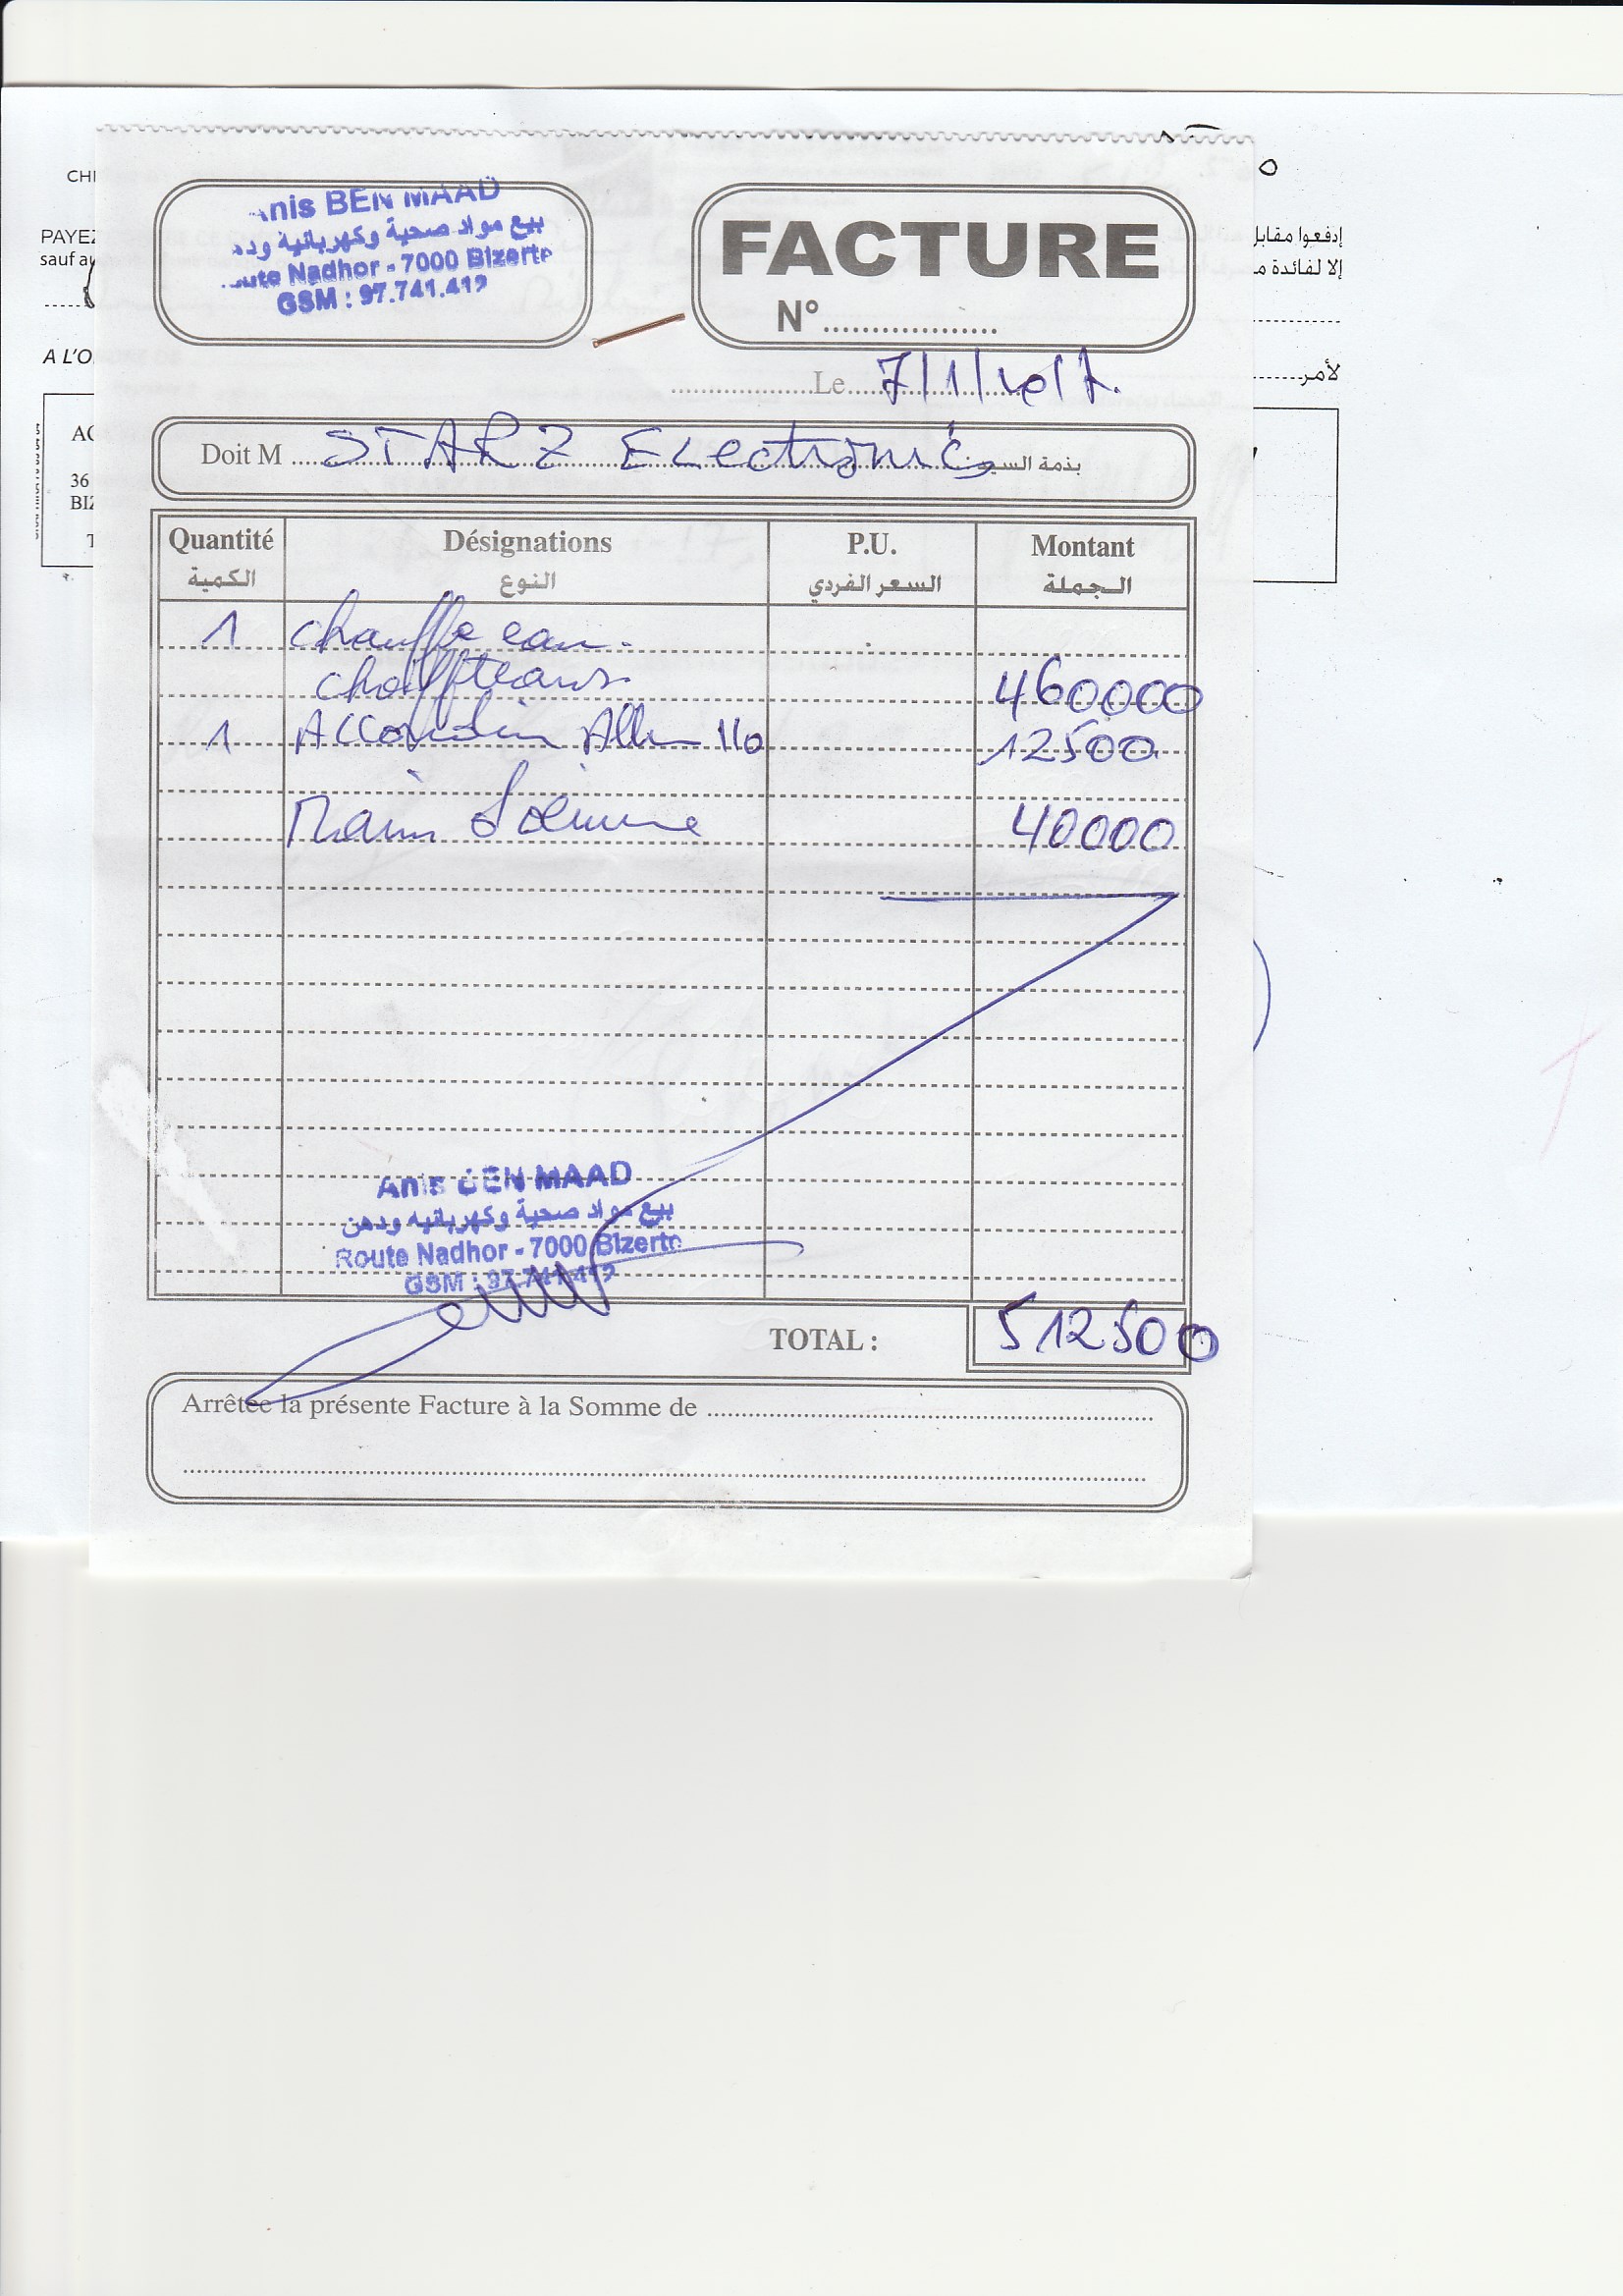 CH
PAYEZ
sauf au
A L'O
36
BIZ
إدفعوا مقابل
إلا لفائدة
لأمر
Anis BEN MAAD
بيع مواد صحية وكهربائية ودهن
Route Nadhor - 7000 Bizerte
GSM : 97.741.412
FACTURE
N°
Le 7/1/2017.
Doit M STARZ Electronic بذمة السيد
Quantité Désignations P.U. Montant
الكمية النوع السعر الفردي الجملة
1 chauffe eau.
460000
1 110 12500
Main 40000
Anis BEN MAAD
بيع مواد صحية وكهربائية ودهن
Route Nadhor - 7000 Bizerte
GSM : 97.741.412
TOTAL : 512500
Arrêtée la présente Facture à la Somme de